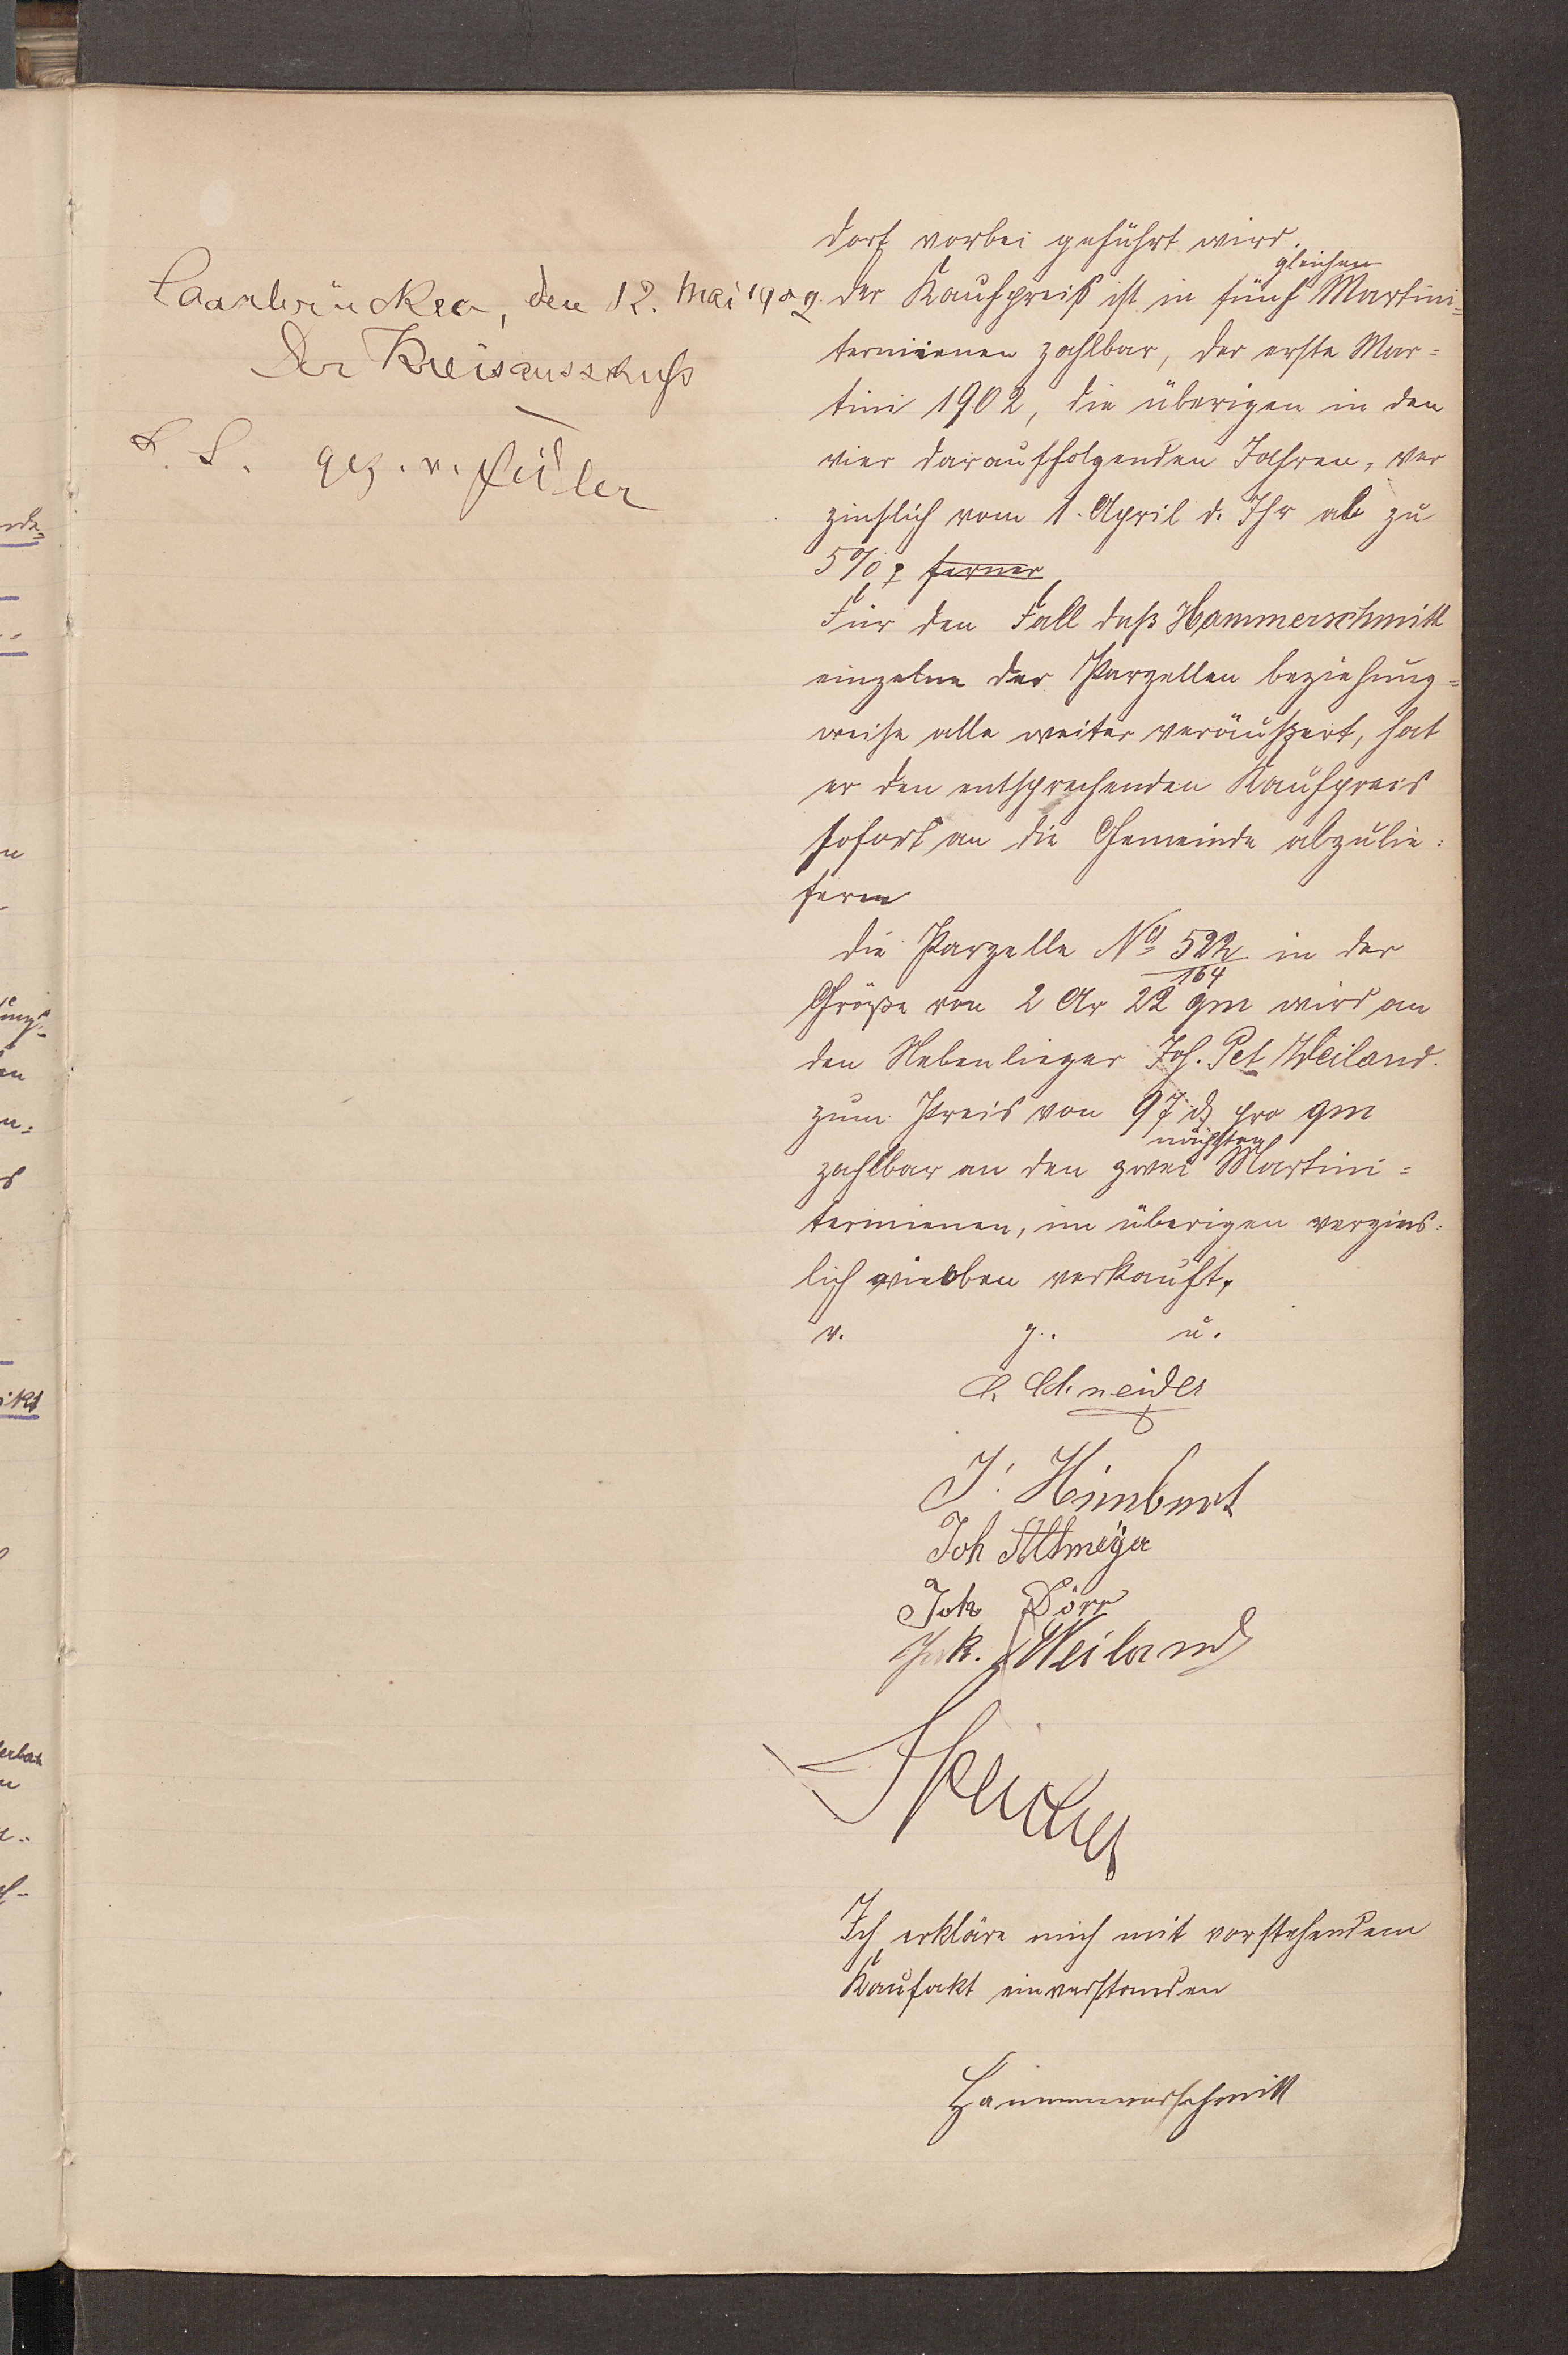 Saarbrücken, den 12. Mai 1902.
Der Kreisausschuß
L. S. gez. v.
dort vorbei geführt wird.
der Kaufpreis ist in fünf gleichen Martini=
terminen zahlbar, der erste Mar=
tini 1902, die überigen in den
vier darauffolgenden Jahren, ver
zinslich vom 1. April d. Jhr ab zu
5%, ferner
Für den Fall daß Hammerschmitt
einzelne der Parzellen beziehung=
weise alle weiter veräußert, hat
er den entsprechenden Kaufpreis
sofort an die Gemeinde abzulie=
fern
die Parzelle No 522/164 in der
Größe von 2 Ar 22 qm wird an
den Nebenlieger Joh. Pet Weiland.
zum Preis von 97 ₰ pro qm
zahlbar an den zwei nächsten Martini=
terminen, im überigen verzins=
lich wie oben verkauft.
v. g. u.
Schneider
J. Himbert
Joh Altmeyer
Joh Dörr
Jak. Weiland
Ich erkläre mich mit vorstehendem
Kaufakt einverstanden
Hammerschmitt